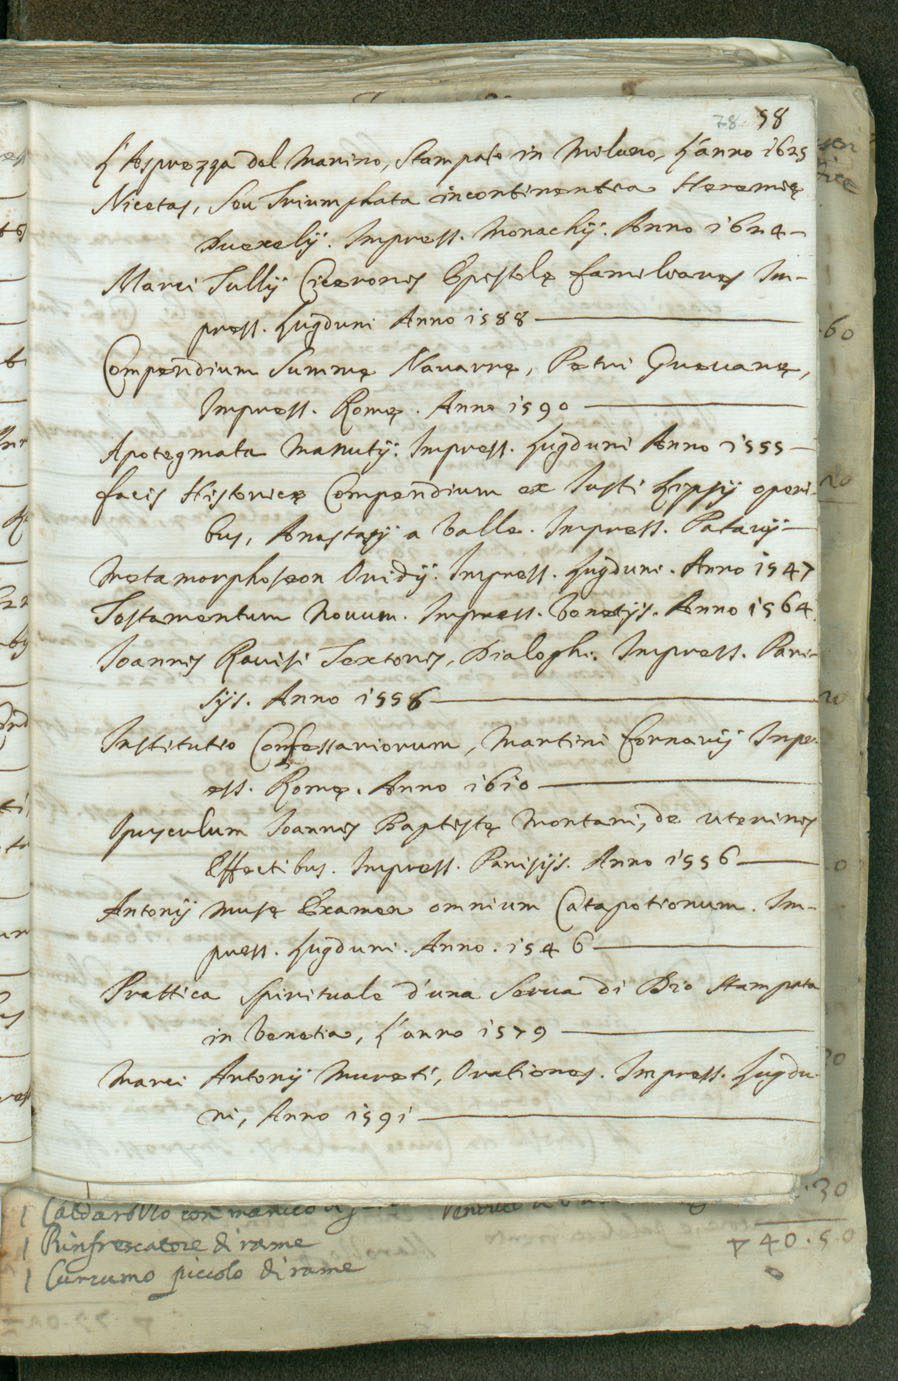 78 58
L'Asprezza del Marino, Stampato in Milano, L'anno 1625
Nicetas, seu Triumphata incontinentia Heremię
Duexelÿ. Impress. Monachÿ. Anno 1624
Marci Tullÿ Ciceronis Epistolę familiares Im-
press. Lugduni Anno 1588
Compendium Summę Navarrę, Petri Gueuarę,
Impress. Romę. Anno 1590
Apotegmata Manutÿ. Impress. Lugduni Anno 1555
facis Historicę Compendium ex Justi Lipsÿ operi-
bus, Anastasÿ a Valle. Impress. Patavÿ
Metamorphoseon Ovidÿ. Impress. Lugduni. Anno 1547
Testamentum Novum. Impress. Venetÿs. Anno 1564.
Joannis Ravisi Textoris, Dialoghi. Impress. Pari-
sÿs. Anno 1558
Institutio Confessariorum, Martini fornarÿ Impr-
ess. Romę. Anno 1610
Opusculum Joannis Baptistę Montani, de uterinis
Effectibus. Impress. Parisÿs. Anno 1556
Antonÿ Musę Examen omnium Catapotionum. Im-
press. Lugduni. Anno. 1546
Prattica Spirituale d'una Serva di Dio Stampata
in Venetia, L'anno 1579
Marci Antonÿ Mureti, Orationes. Impress. Lugdu-
ni, Anno 1591
1 Caldarozzo con manico
.30
1 Rinfrescatore di rame
40.50
1 Cucumo piccolo di rame